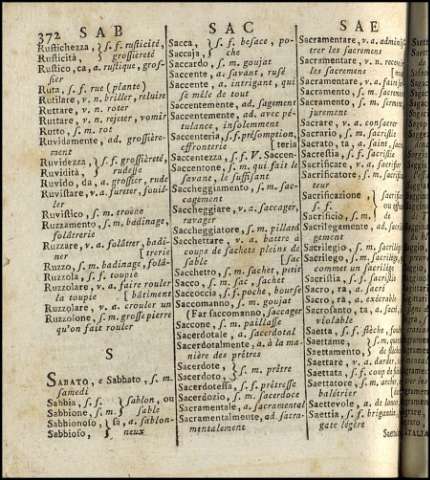 372 SAB
SAC
SAE
Rustichezza, } s. f. rusticité,
Rusticità, } grossièreté
Rustico, ca, a. rustique, gros-
sier
Ruta, s. f. rue (plante)
Rutilare, v. n. briller, reluire
Ruttare, v. n. roter
Ruttare, v. a. rejeter, vomir
Rutto, s. m. rot
Ruvidamente, ad. grossière-
ment
Ruvidezza, } s. f. grossièreté,
Ruvidità, } rudesse
Ruvido, da, a. grossier, rude
Ruvistare, v. a. fureter, fouil-
ler
Ruvistico, s. m. troène
Ruzzamento, s. m. badinage,
folâtrerie
Ruzzare, v. a. folâtrer, badi-
ner [trerie
Ruzzo, s. m. badinage, folâ-
Ruzzola, s. f. toupie
Ruzzolare, v. a. faire rouler
la toupie [bâtiment
Ruzzolare, v. a. crouler un
Ruzzolone, s. m. grosse pierre
qu'on fait rouler
S
SABATO, e Sabbato, s. m.
samedi
Sabbia, s. f. } sablon, ou
Sabbione, s. m. } sable
Sabbionoso, } sa, a. sablon-
Sabbioso, } neux
Sacca, } s. f. besace, po-
Saccaja, } che
Saccardo, s. m. goujat
Saccente, a. savant, rusé
Saccente, a. intrigant, qui
se mêle de tout
Saccentemente, ad. sagement
Saccentemente, ad. avec pé-
tulance, insolemment
Saccenteria, s. f. présomption,
effronterie [teria
Saccentezza, s. f. V. Saccen-
Saccentone, s. m. qui fait le
savant, le suffisant
Saccheggiamento, s. m. sac-
cagement
Saccheggiare, v. a. saccager,
ravager
Saccheggiatore, s. m. pillard
Sacchettare, v. a. battre à
coups de sachets pleins de
sable [sac
Sacchetto, s. m. sachet, petit
Sacco, s. m. sac, sachet
Saccoccia, s. f. poche, bourse
Saccomanno, s. m. goujat
(Far saccomanno, saccager
Saccone, s. m. paillasse
Sacerdotale, a. sacerdotal
Sacerdotalmente, a. à la ma-
nière des prêtres
Sacerdote, } s. m. prêtre
Sacerdoto, }
Sacerdotessa, s. f. prêtresse
Sacerdozio, s. m. sacerdoce
Sacramentale, a. sacramental
Sacramentalmente, ad. sacra-
mentalement
Sacramentare, v. a. adminis-
trer les sacremens
Sacramentare, v. n. recevoir
les sacremens
Sacramentare, v. a.
Sacramento, s. m. sacrement
Sacramento, s. m. serment,
jurement
Sacrare, v. a. consacrer
Sacrario, s. m. sacristie
Sacrato, ta, a. saint,
Sacrestia, s. f. sacristie
Sacrificare, v. a. sacrifier
Sacrificatore, s. m. sacrifica-
teur
Sacrificazione, } sacrifice
s. f.
Sacrificio, s. m.
Sacrilegamente, ad.
gement
Sacrilegio, s. m. sacrilege
Sacrilego, s. m. sacrilege,
commet un sacrilege
Sacristia, s. f. sacristie
Sacro, ra, a. sacré
Sacro, ra, a. exécrable
Sacrosanto, ta, a.
violable
Saetta, s. f. flèche,
Saettame, s. m.
Saettamento, } de flèches
Saettare, v. a. darder,
Saettata, s. f. coup de flèche
Saettatore, s. m. archer,
balétrier
Saettevole, a. de
Saettia, s. f. brigantin,
gate légère